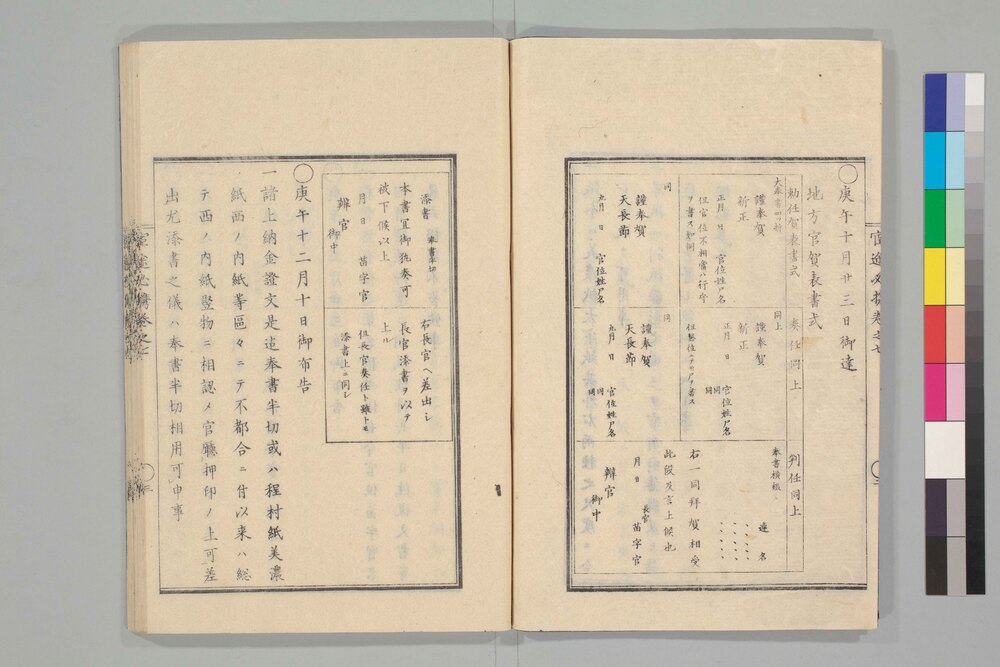 ○庚午十月廿三日御達
地方官賀表書式
勅任賀表書式
大奉書四ツ折
謹奉賀
新正
正月 日 官位姓尸名
但官位不相當ハ行守
ヲ書ス如例
同
謹奉賀
天長節
九月 日 官位姓尸名
奏任同上
同上
謹奉賀
新正
正月 日 官位姓尸名
同 同
同
謹奉賀
天長節
九月 日 官位姓尸名
同 同
判任同上
奉書横紙
連名
右一同拜賀相受
此段及言上候也
月 日 長官 苗字官
辨官
御中
添書 奉書半切
本書宜御執奏可
被下候以上
月 日 苗字官
辨官
御中
右長官ヘ差出シ
長官添書ヲ以テ
上ル
但長官奏任ト雖トモ
添書上ニ同シ
○庚午十二月十日御布告
一諸上納金證文是迠奉書半切或ハ程村紙美濃
紙西ノ内紙等區々ニテ不都合ニ付以来ハ総
テ西ノ内紙竪物ニ相認メ官廳押印ノ上可差
出尤添書之儀ハ奉書半切相用可申事